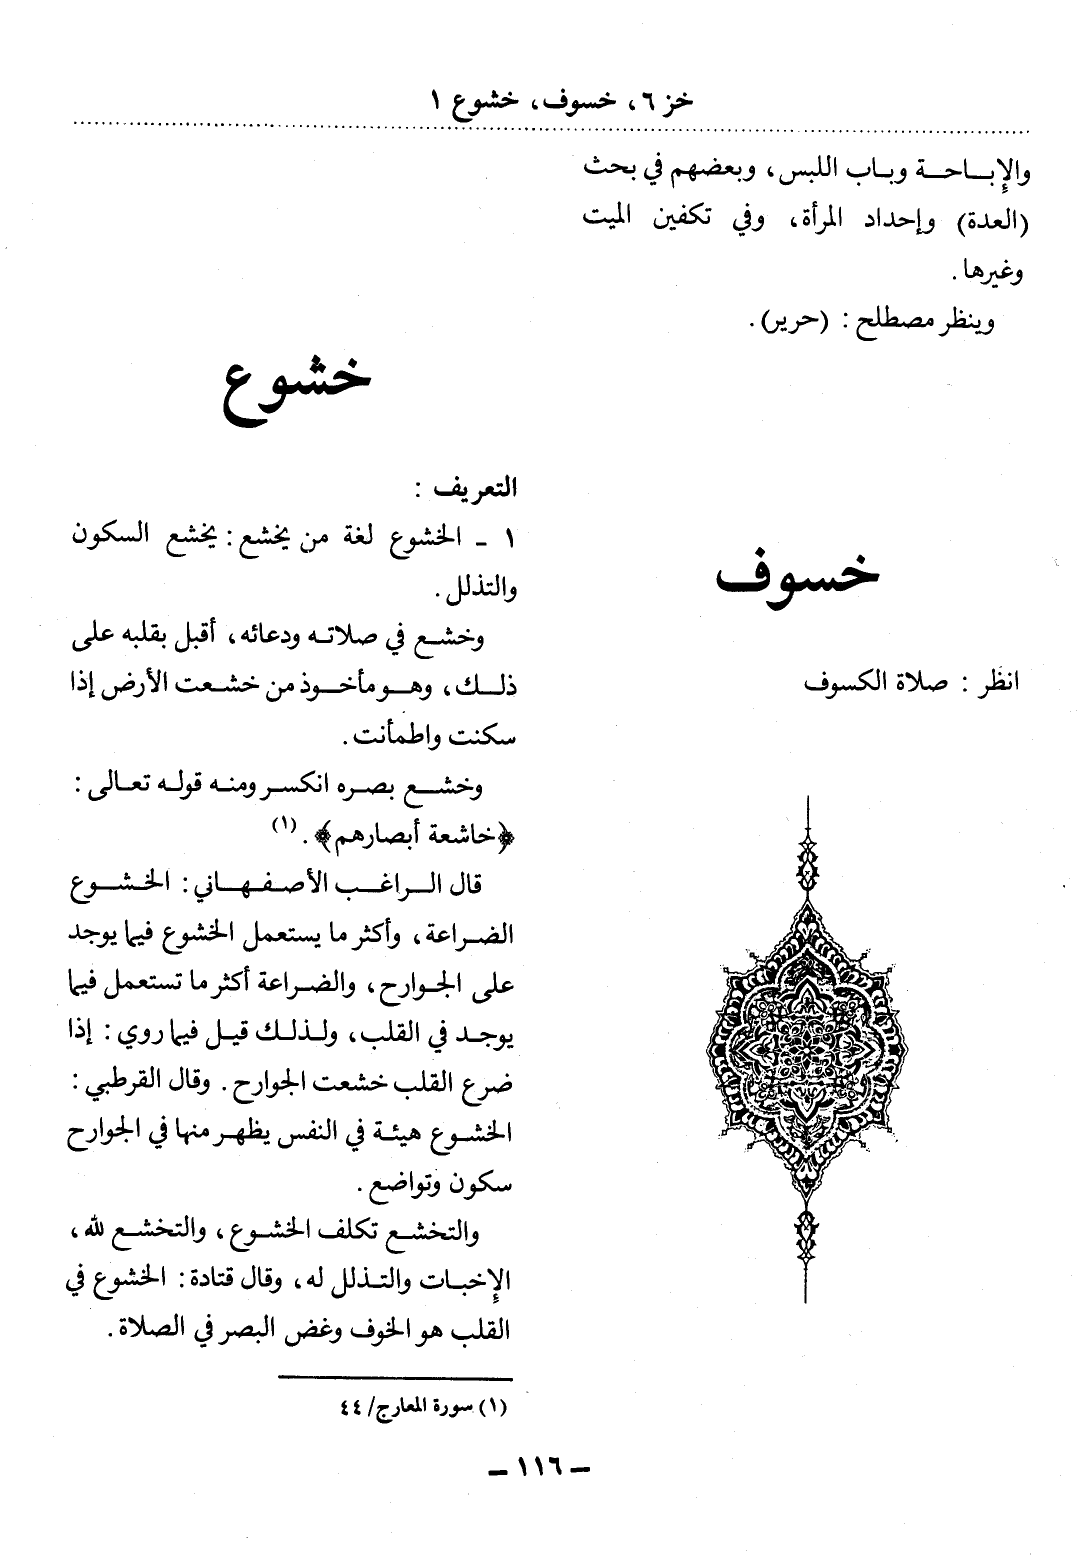 خز ٦، خسوف، خشوع ١
والإباحة وباب اللبس، وبعضهم في بحث
(العدة) وإحداد المرأة، وفي تكفين الميت
وغيرها.
وينظر مصطلح: (حرير).
خسوف
انظر: صلاة الكسوف
خشوع
التعريف:
١ ـ الخشوع لغة من يخشع: يخشع السكون
والتذلل.
وخشع في صلاته ودعائه، أقبل بقلبه على
ذلك، وهو مأخوذ من خشعت الأرض إذا
سكنت واطمأنت.
وخشع بصره انكسر ومنه قوله تعالى:
﴿خاشعة أبصارهم﴾. (١)
قال الراغب الأصفهاني: الخشوع
الضراعة، وأكثر ما يستعمل الخشوع فيما يوجد
على الجوارح، والضراعة أكثر ما تستعمل فيما
يوجد في القلب، ولذلك قيل فيما روي: إذا
ضرع القلب خشعت الجوارح. وقال القرطبي:
الخشوع هيئة في النفس يظهر منها في الجوارح
سكون وتواضع.
والتخشع تكلف الخشوع، والتخشع لله،
الإخبات والتذلل له، وقال قتادة: الخشوع في
القلب هو الخوف وغض البصر في الصلاة.
(١) سورة المعارج/ ٤٤
ـ ١١٦ ـ